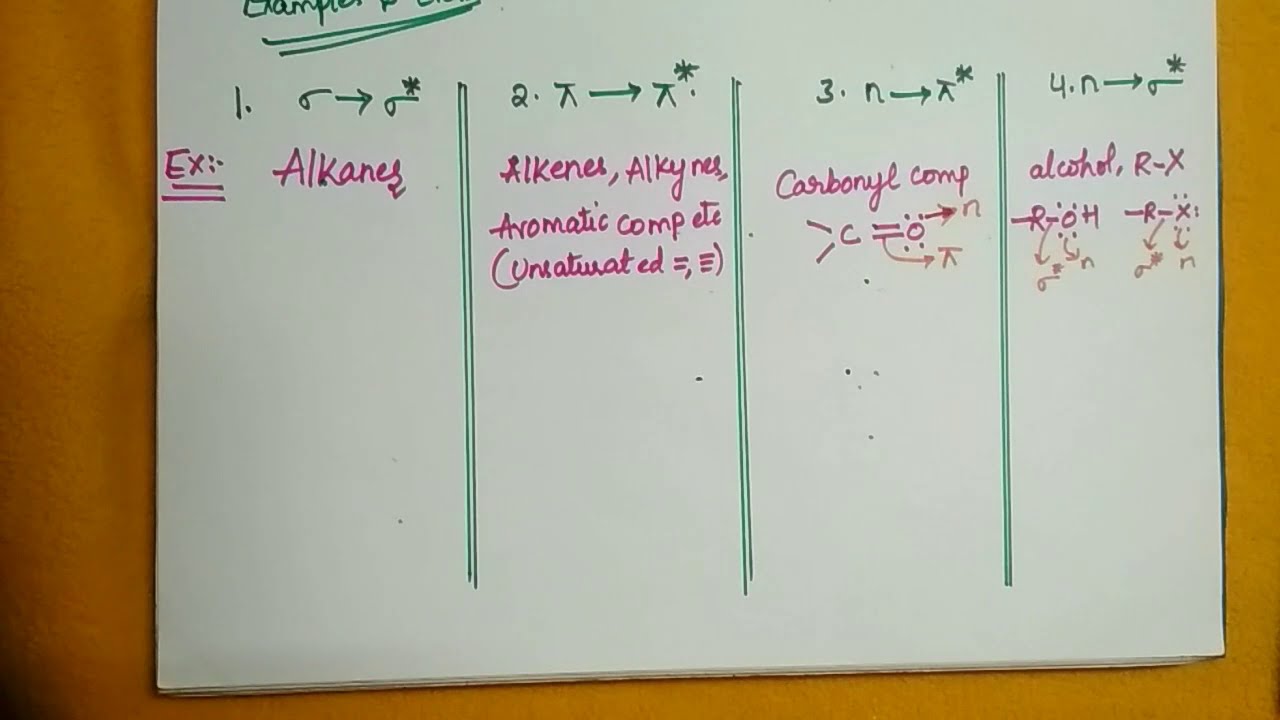 Examples
1. σ → σ*
2. π → π*.
3. n → π*
4. n → σ*
Ex:-
Alkanes
Alkenes, Alkynes,
Aromatic comp etc
(Unsaturated =, ≡)
Carbonyl comp
C=O → n
→ π
alcohol, R-X
-R-OH -R-X:
σ* n σ* n